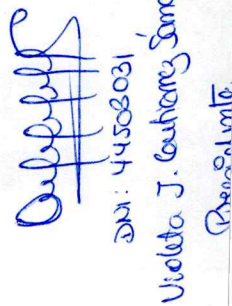 DNI: 44508031
Violeta J. Gutiarrez
Presidenta